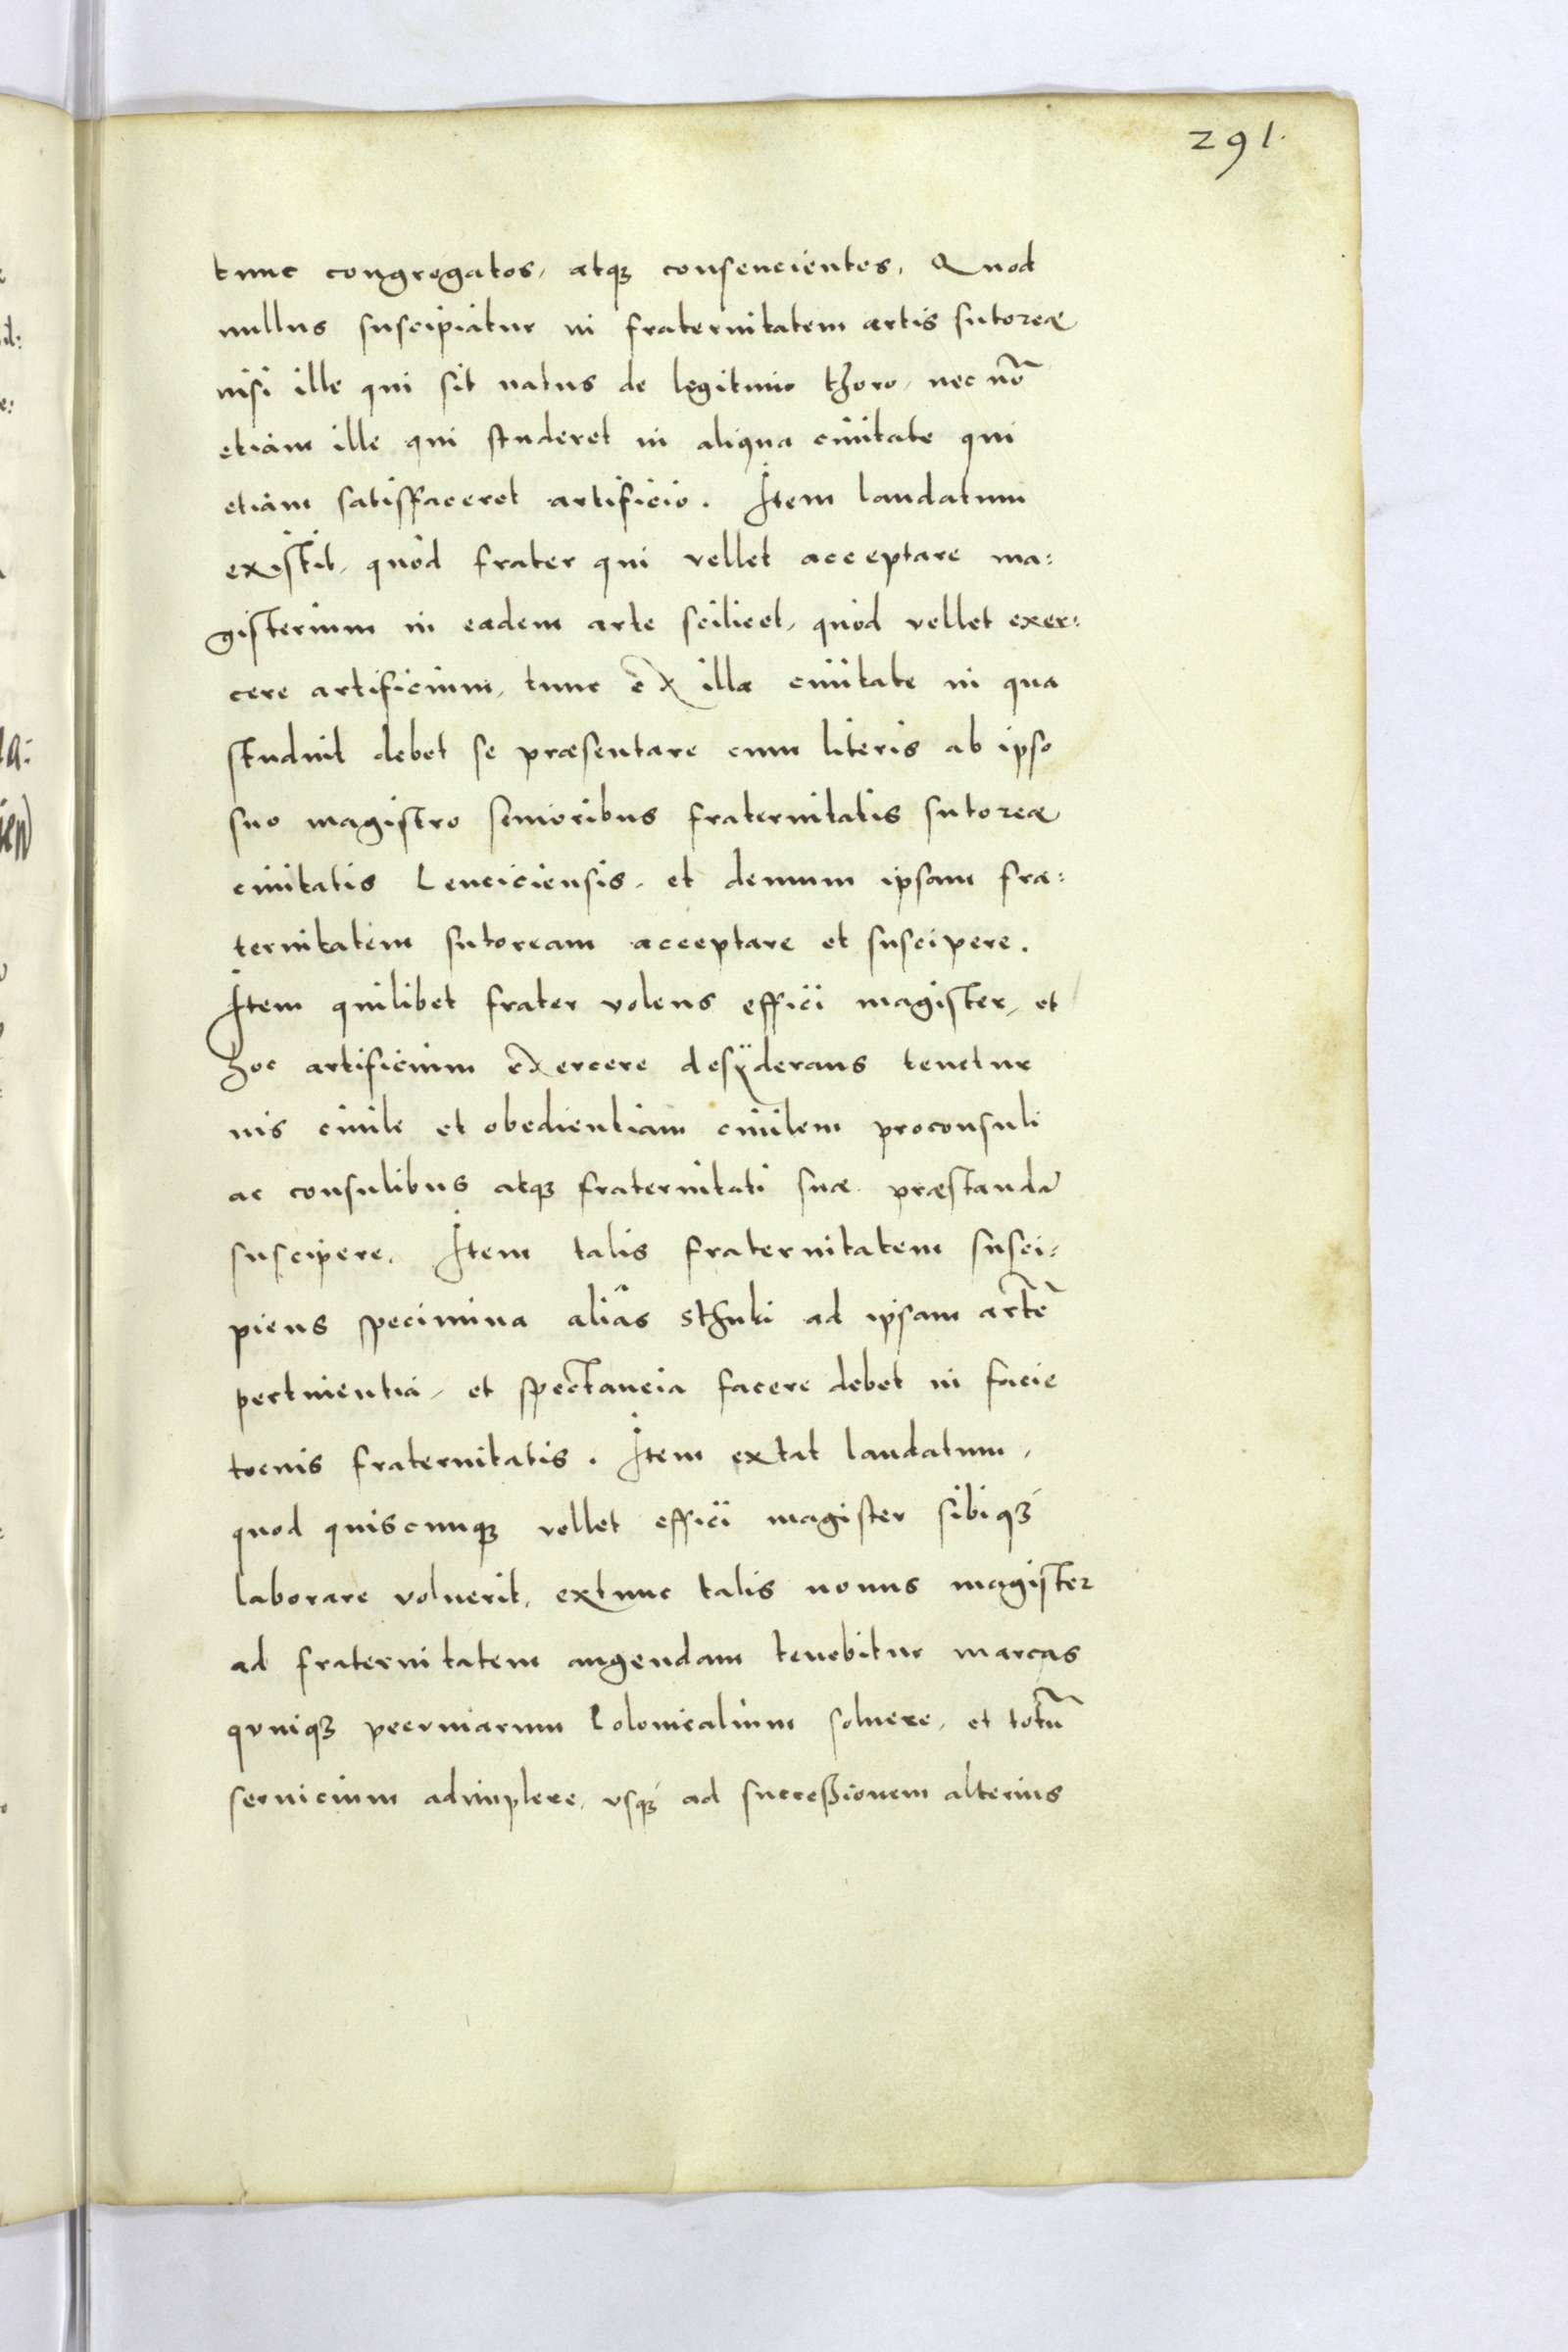 291.
tunc congregatos, atqꝫ consencientes, Quod
nullus suscipiatur in fraternitatem artis sutoreæ
nisi ille qui sit natus de legitimo thoro, nec nō
etiam ille qui studeret in aliqua ciuitate qui
etiam satisfaceret artificio. Item laudatum
existit, quòd frater qui vellet acceptare ma:
gisterium in eadem arte scilicet, quòd vellet exer:
cere artificium, tunc ex illa ciuitate in qua
studuit debet se præsentare cum literis ab ipso
suo magistro senioribus fraternitatis sutoreæ
ciuitatis Lenciciensis, et demum ipsam fra:
ternitatem sutoream acceptare et suscipere.
Item quilibet frater volens effici magister, et
hoc artificium exercere desÿderans tenetur
ius ciuile et obedientiam ciuilem proconsuli
ac consulibus atqꝫ fraternitati suæ præstandā
suscipere. Item talis fraternitatem susci:
piens specimina aliâs sthuki ad ipsam artē
pertinentia, et spectancia facere debet in facie
tocius fraternitatis. Item extat laudatum,
quod quiscunqꝫ vellet effici magister sibiqꝫ
laborare voluerit, extunc talis nouus magister
ad fraternitatem augendam tenebitur marcas
quniqꝫ pecuniarum Lolonicalium soluere, et totū
seruicium adimplere, vsqꝫ ad successionem alterius